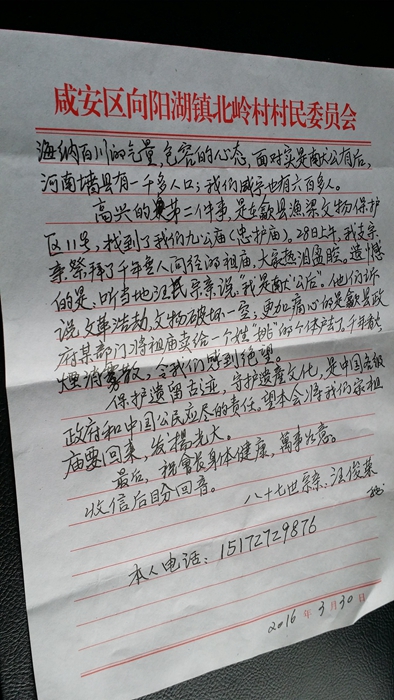 咸安区向阳湖镇北岭村村民委员会
海纳百川的气量,包容的心态,面对实是献公有后,
河南墙县有一千多人口;我们咸宁也有六百多人。
高兴的第二个件事是去歙县渔梁文物保护
区11号,找到了我们九公庙(忠护庙)。28日上午,我去宗
亲祭拜了千年老人向往的祖庙,大家热泪盈眶。遗憾
的是:听当地汪氏宗亲说"我是献公后"。他们诉
说文革浩劫,文物破坏一空,更加痛心的是歙县政
府某部门将祖庙卖给一个姓"姚"的个体户去了,千年
烟消散,令我们感到绝望。
保护遗留古迹,守护遗产文化,是中国各级
政府和中国公民应尽的责任。望本会将我们家祖
庙要回来,发扬光大。
最后,祝會長身体健康,萬事如意。
收信后盼回音。
八十七世宗亲:汪俊
本人电话:15172729876
2016年3月30日